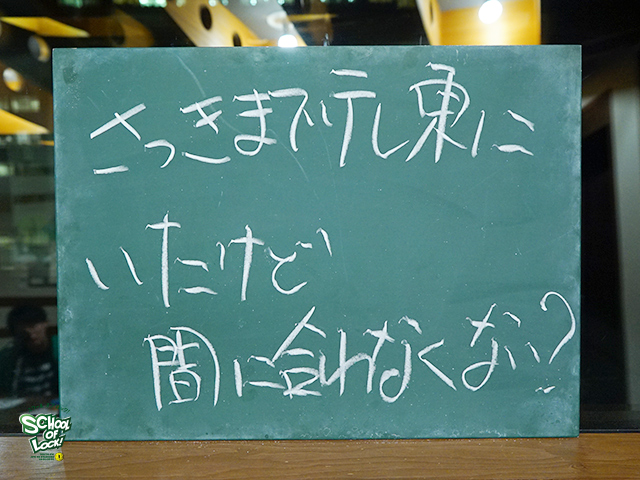 さっきまでテレ東に
いたけど
間に合わなくない？
SCHOOL
OF
LOCK!